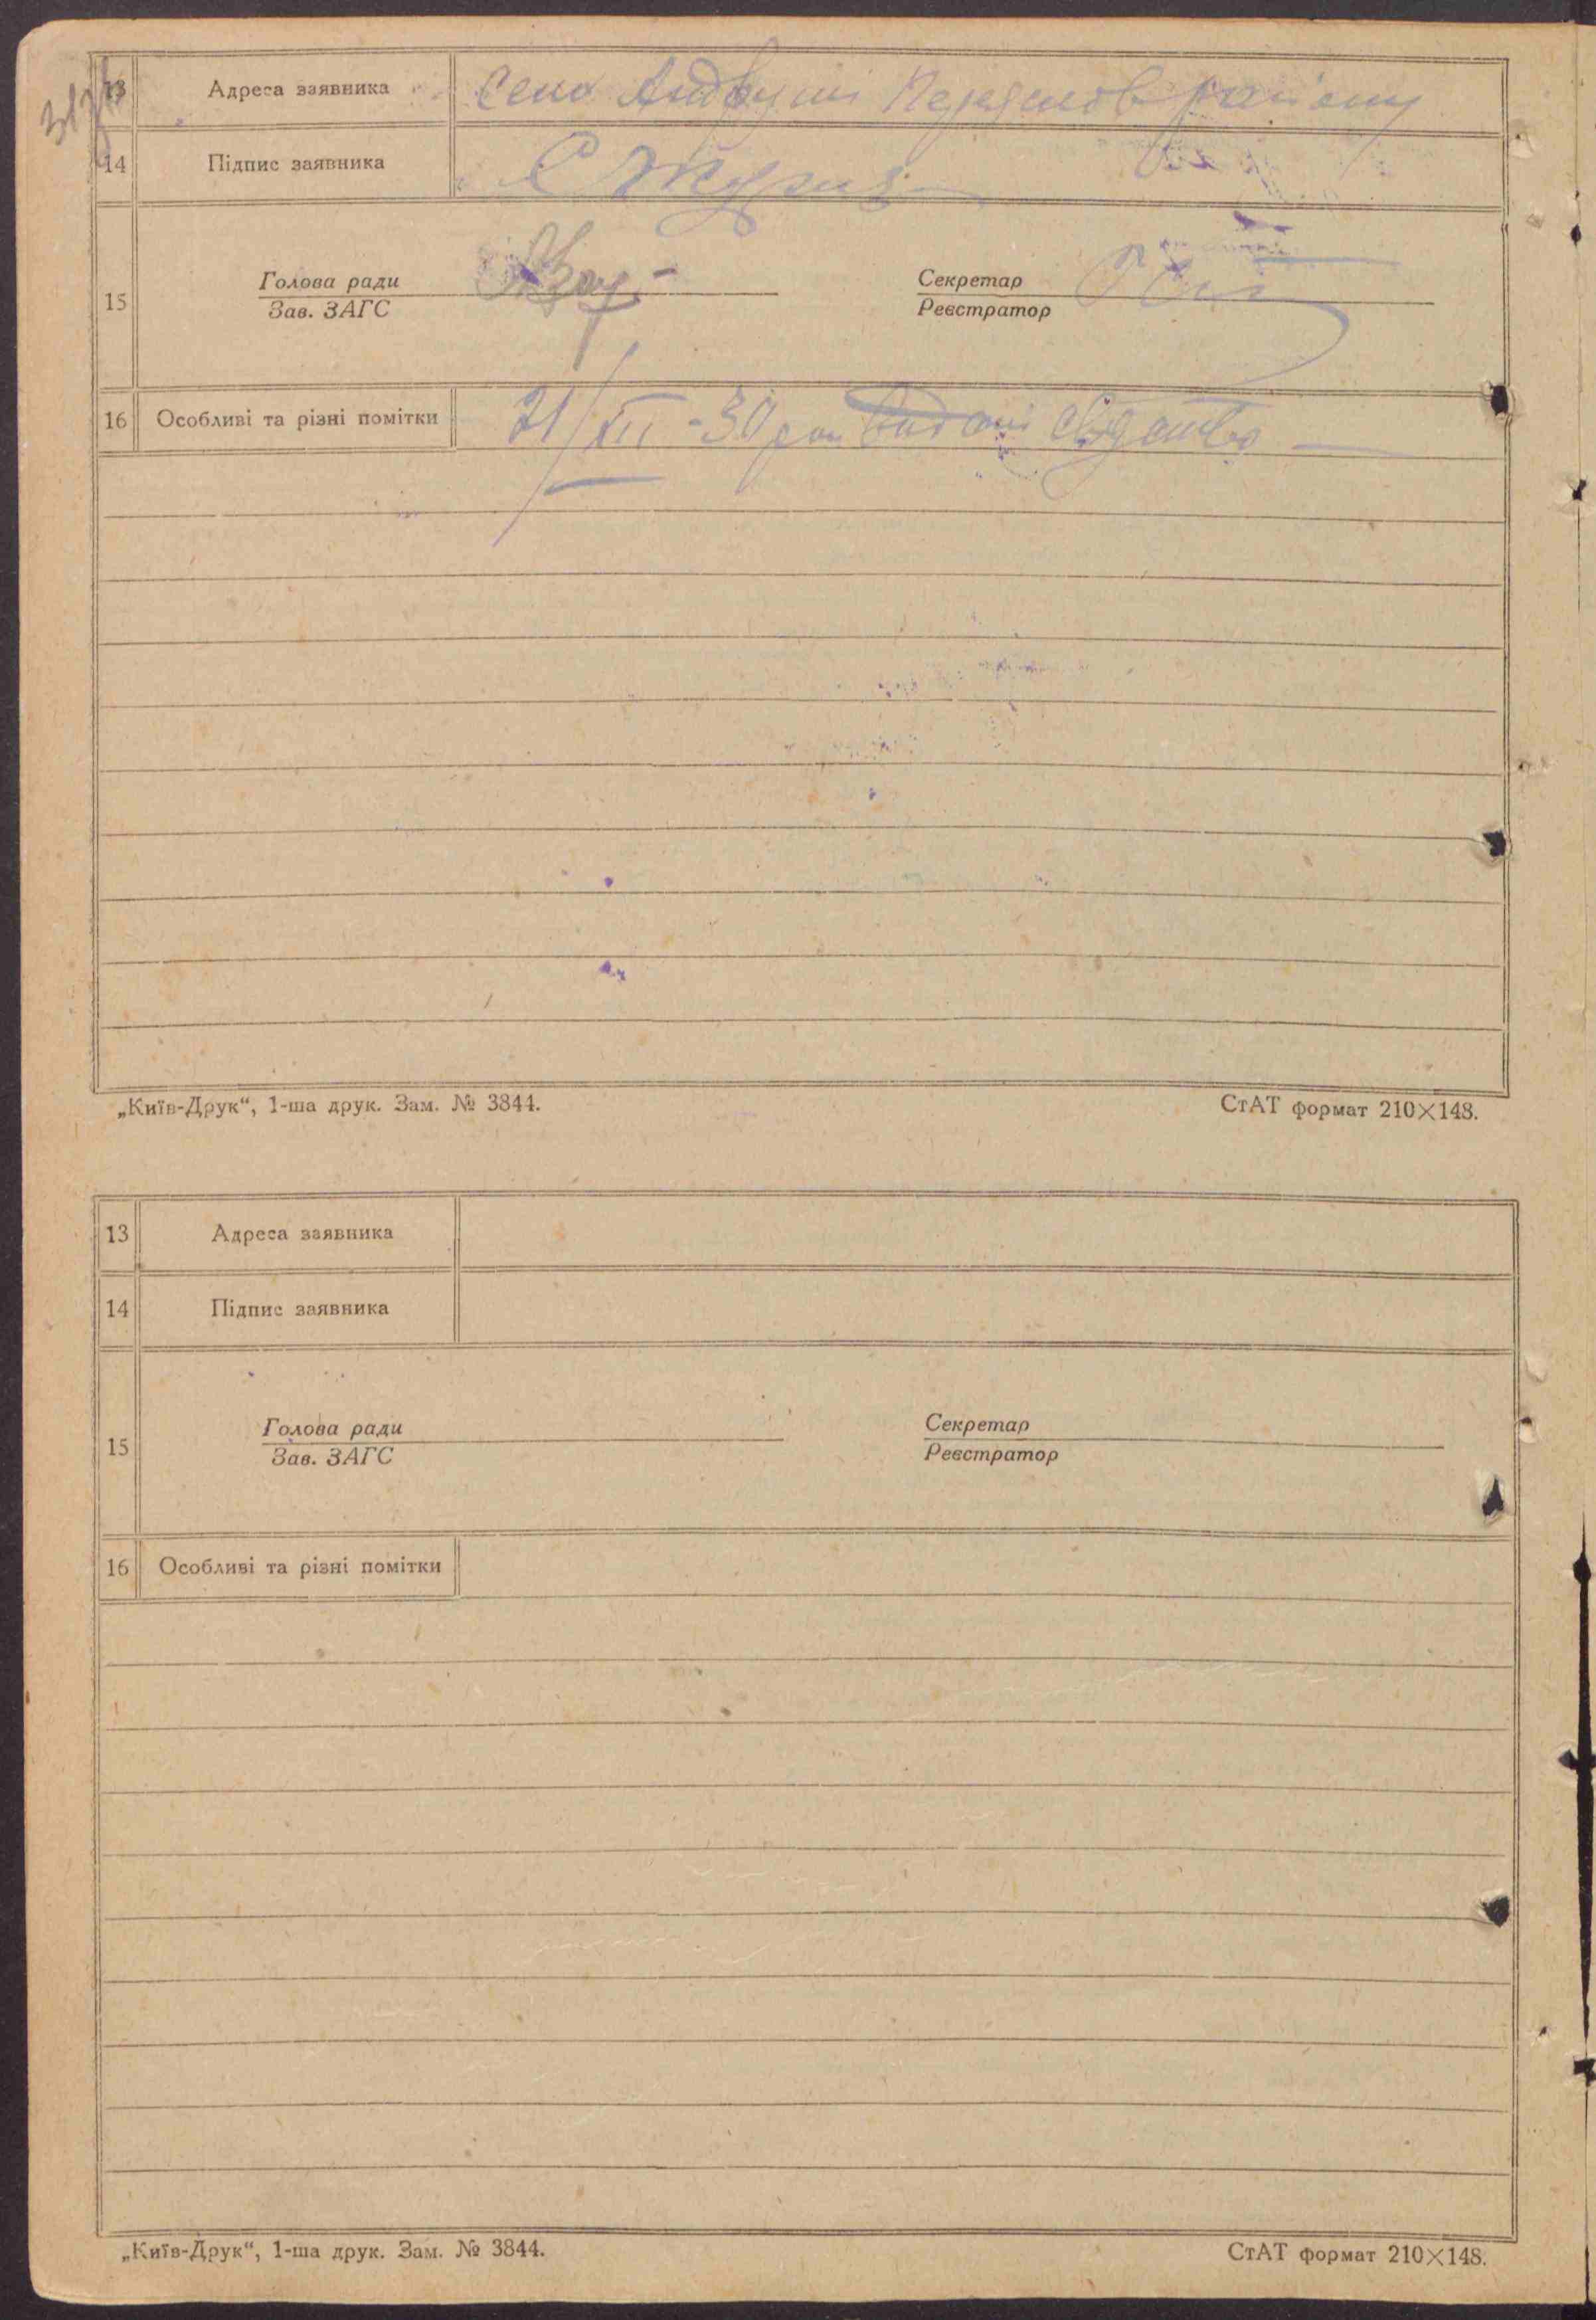 13 Адреса заявника Село Андруші Переяслов району
14 Підпис заявника
15 Голова ради Секретар
Зав. ЗАГС Реєстратор
16 Особливі та різні помітки 21/XII-30 року
„Київ-Друк“, 1-ша друк. Зам. № 3844. СтАТ формат 210×148.
13 Адреса заявника
14 Підпис заявника
15 Голова ради Секретар
Зав. ЗАГС Реєстратор
16 Особливі та різні помітки
„Київ-Друк“, 1-ша друк. Зам. № 3844. СтАТ формат 210×148.